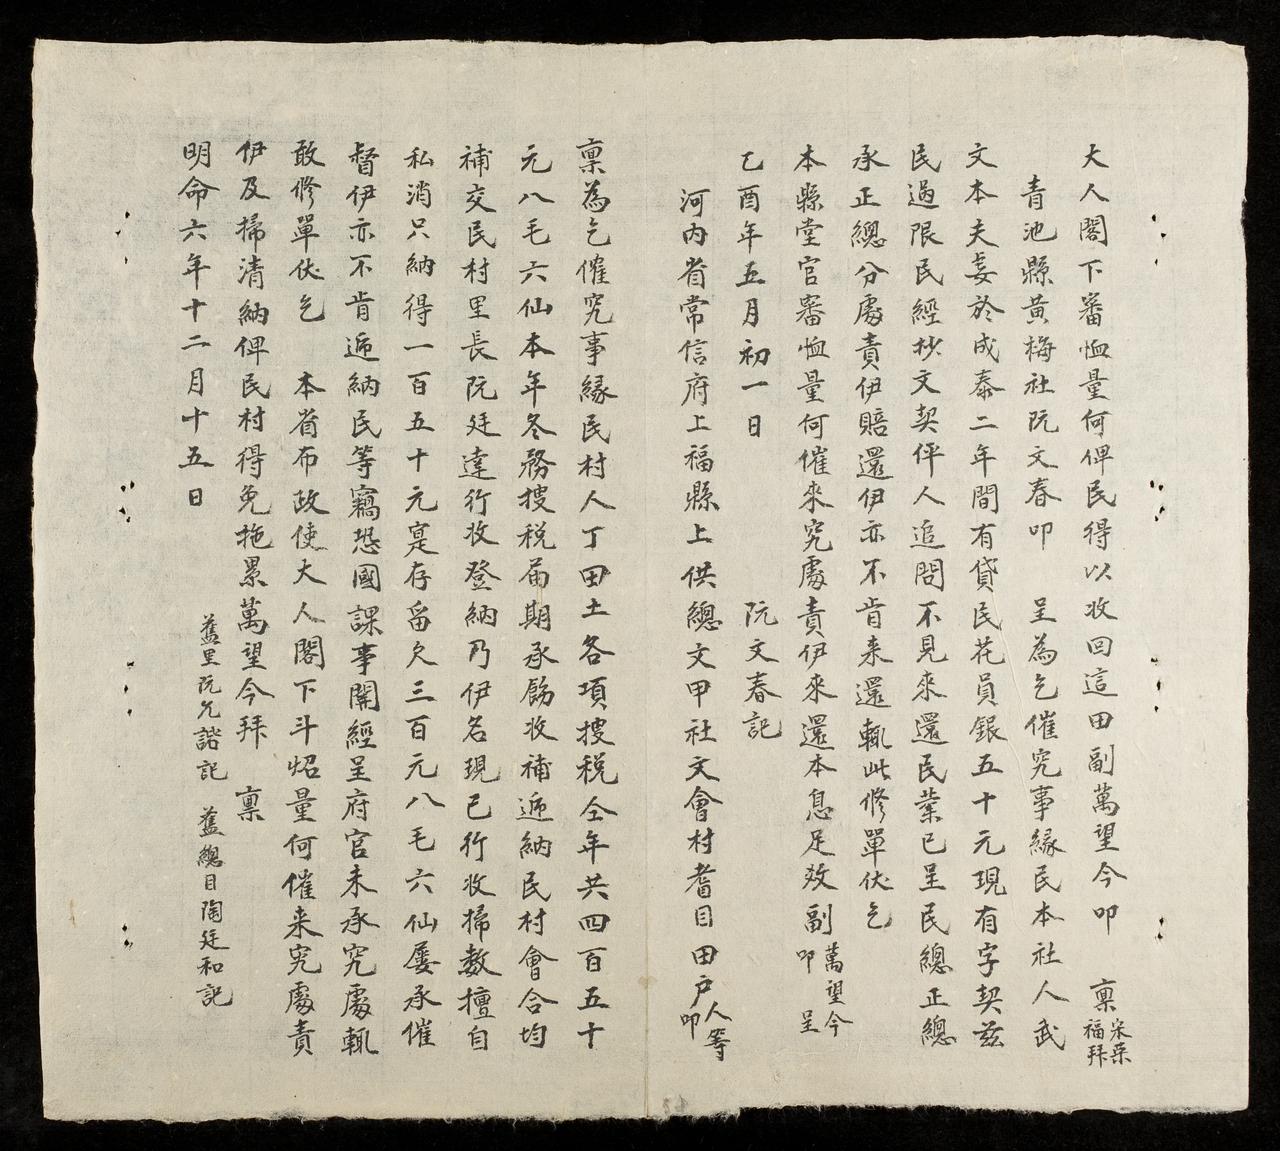 大人閣下審恤量何俾民得以收回這田副萬望今叩 稟
宋榮福拜
青池縣黃梅社阮文春叩 呈為乞催究事緣民本社人武
文本夫妾於成泰二年間有貸民花員銀五十元現有字契茲
民過限民經抄文契伻人追問不見來還民業已呈民總正總
承正總分處責伊賠還伊亦不肯来還輒此修單伏乞
本縣堂官審恤量何催來究處責伊來還本息足效副萬望今叩 呈
乙酉年五月初一日 阮文春記
河内省常信府上福縣上供總文甲社文會村耆目田戶人等叩
稟為乞催究事緣民村人丁田土各項搜税仝年共四百五十
元八毛六仙本年冬務搜税届期承飭收補遞納民村會合均
補交民村里長阮廷達行收登納乃伊名現已行收掃数擅自
私消只納得一百五十元寔存畱欠三百元八毛六仙屡承催
督伊亦不肯遞納民等竊恐國課事関經呈府官未承究處輒
敢修單伏乞 本省布政使大人閣下斗炤量何催来究處責
伊及掃清納俾民村得免拖累萬望今拜 稟
明命六年十二月十五日
舊里阮允諧記 舊總目陶廷和記